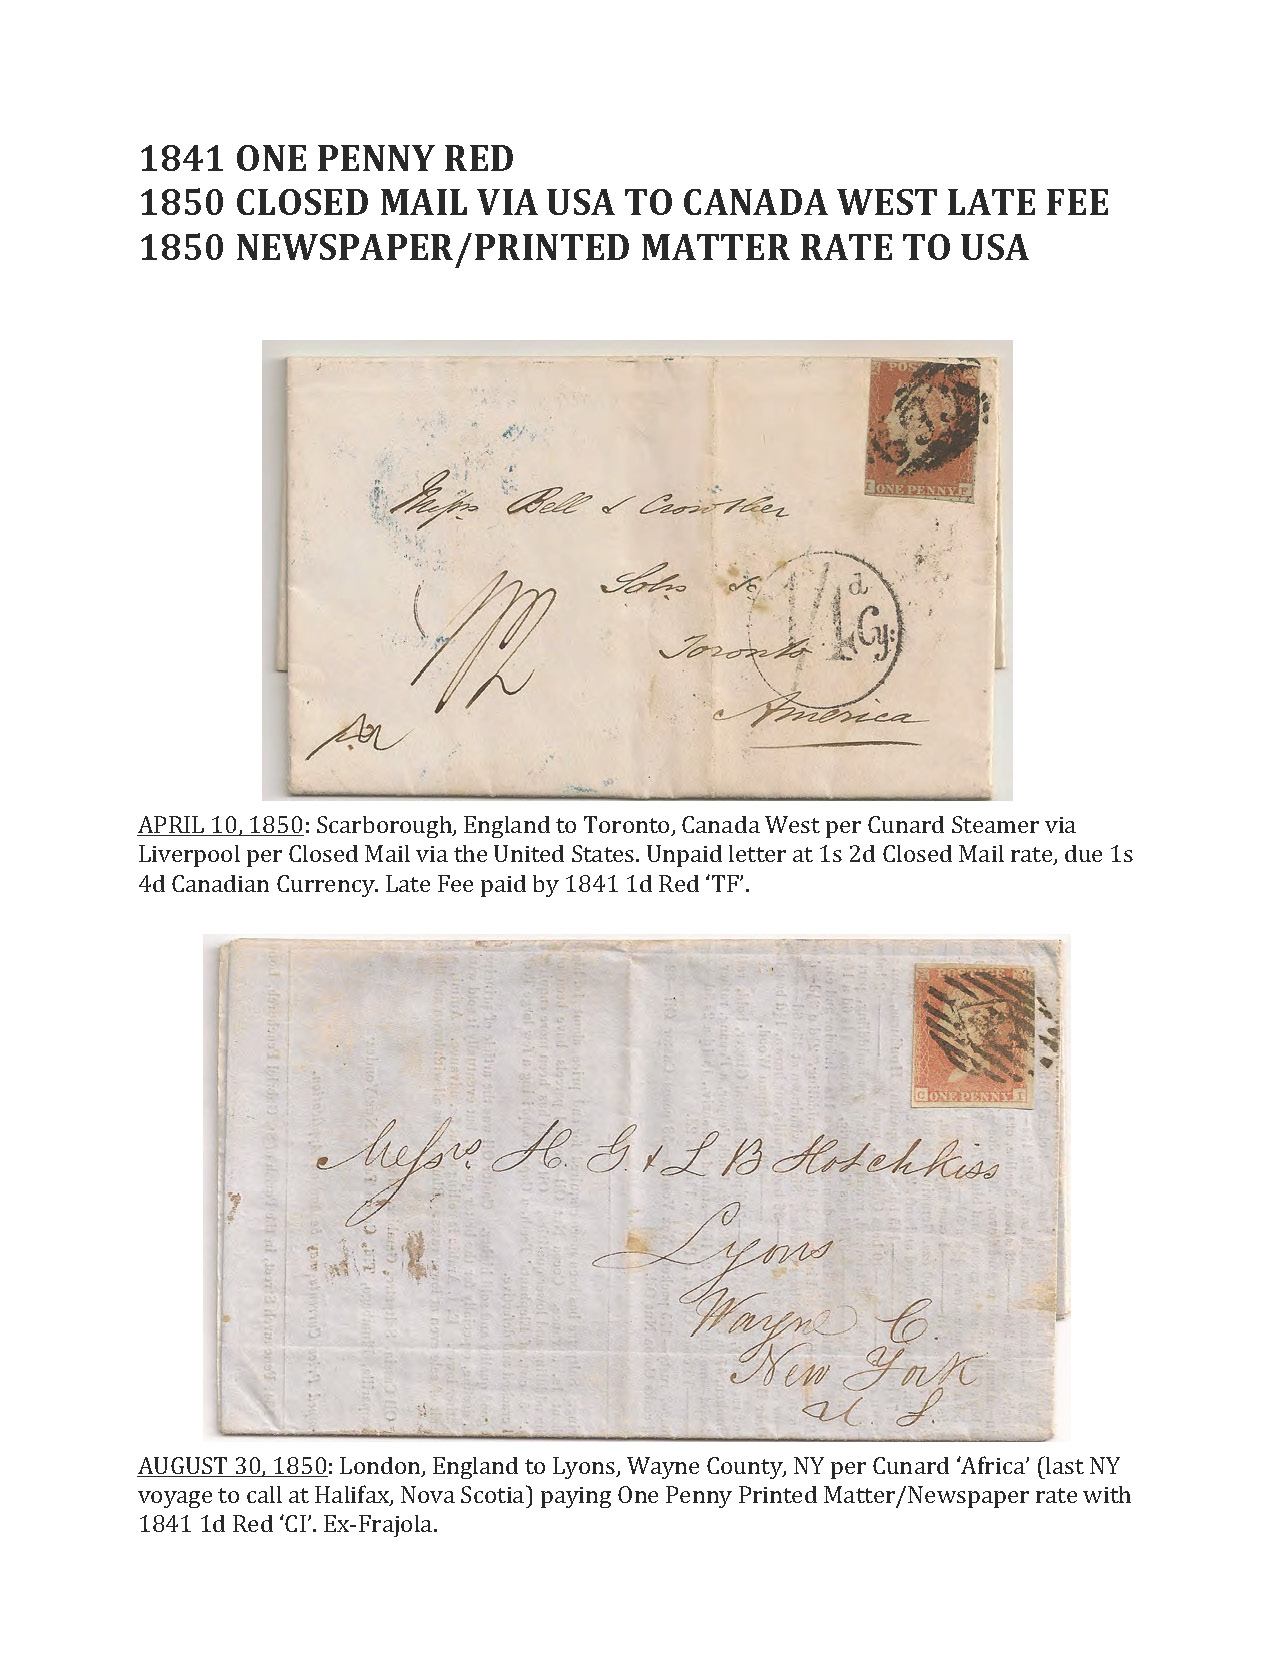 1841 ONE PENNY RED
1850 CLOSED MAIL VIA USA TO CANADA WEST LATE FEE
1850 NEWSPAPER/PRINTED MATTER RATE TO USA
POS
ONE PENNY
F
Messrs Bell & Crowther
Toronto
America
1/4d
Cy:
APRIL 10, 1850: Scarborough, England to Toronto, Canada West per Cunard Steamer via
Liverpool per Closed Mail via the United States. Unpaid letter at 1s 2d Closed Mail rate, due 1s
4d Canadian Currency. Late Fee paid by 1841 1d Red ‘TF’.
C ONE PENNY I
Messrs. H. G. & L B Hotchkiss
Lyons
Wayne C.
New York
U. S.
AUGUST 30, 1850: London, England to Lyons, Wayne County, NY per Cunard ‘Africa’ (last NY
voyage to call at Halifax, Nova Scotia) paying One Penny Printed Matter/Newspaper rate with
1841 1d Red ‘CI’. Ex-Frajola.